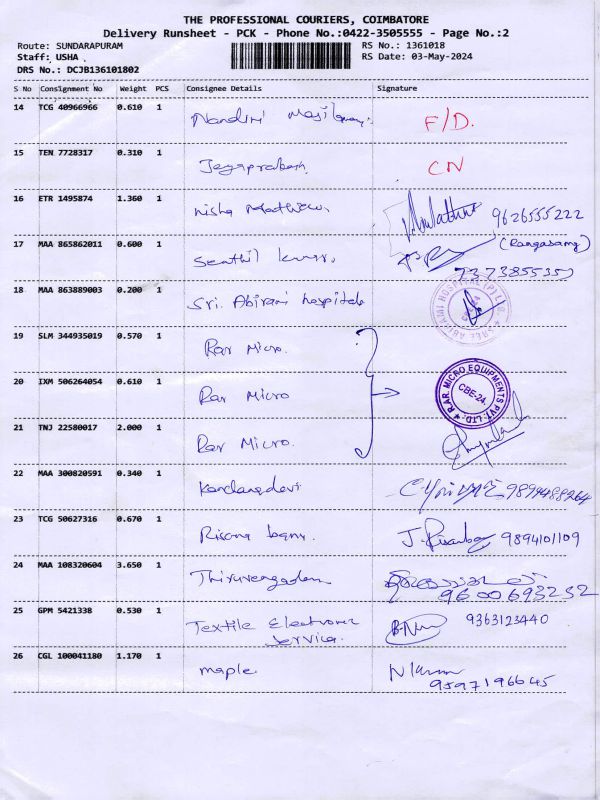 THE PROFESSIONAL COURIERS, COIMBATORE
Delivery Runsheet - PCK - Phone No.:0422-3505555 - Page No.:2
Route: SUNDARAPURAM
RS No.: 1361018
Staff: USHA .
RS Date: 03-May-2024
DRS No.: DCJB136101802
S No Consignment No Weight PCS Consignee Details Signature
14 TCG 40966966 0.610 1 Nandini F/D.
15 TEN 7728317 0.310 1 Jeyaprakash CN
16 ETR 1495874 1.360 1 nisha Mathew. 9626555222
17 MAA 865862011 0.600 1 Senthil kumar. (Rangasamy)
7373855351
18 MAA 863889003 0.200 1 Sri. Abirami hospitals SREE ABIRAMI HOSPITAL (P) LTD.
19 SLM 344935019 0.570 1 Rar Micro.
20 IXM 506264054 0.610 1 Rar Micro R.A.R. MICRO EQUIPMENTS PVT. LTD. CBE-24.
21 TNJ 22580017 2.000 1 Rar Micro.
22 MAA 300820591 0.340 1 Kandangdevi 9899488264
23 TCG 50627316 0.670 1 Risana banu. 9894101109
24 MAA 108320604 3.650 1 Thiruvengadam
9600693232
25 GPM 5421338 0.530 1 Textile Electronic 9363123440
Service.
26 CGL 100041180 1.170 1 maple
9597196645